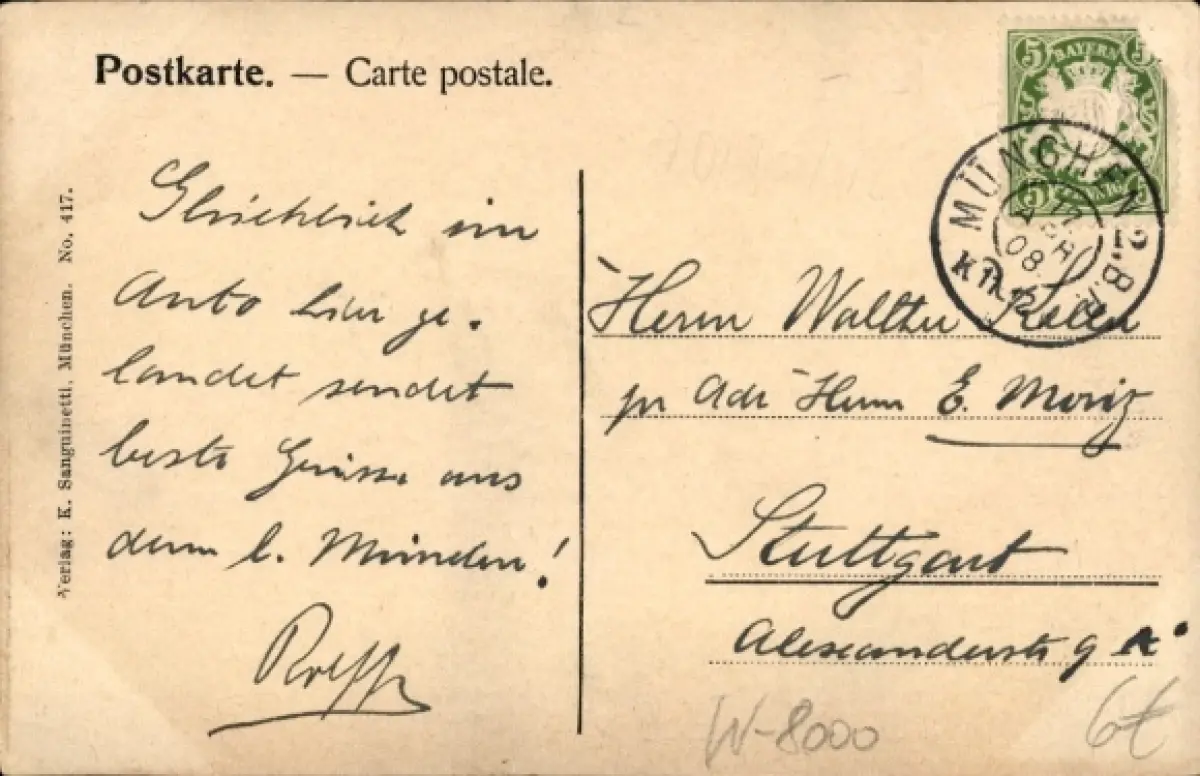 Postkarte. — Carte postale.
5 BAYERN 5
MÜNCHEN 2. B.P.
17
APR
08.
Verlag: K. Sanguinetti, München. No. 417.
Glücklich im
Auto hier ge-
landet sendet
beste Grüsse aus
dem l. München!
Herrn Walther
pr Adr Herrn E. Moriz
Stuttgart
Alexanderstr 9
W-8000
6€